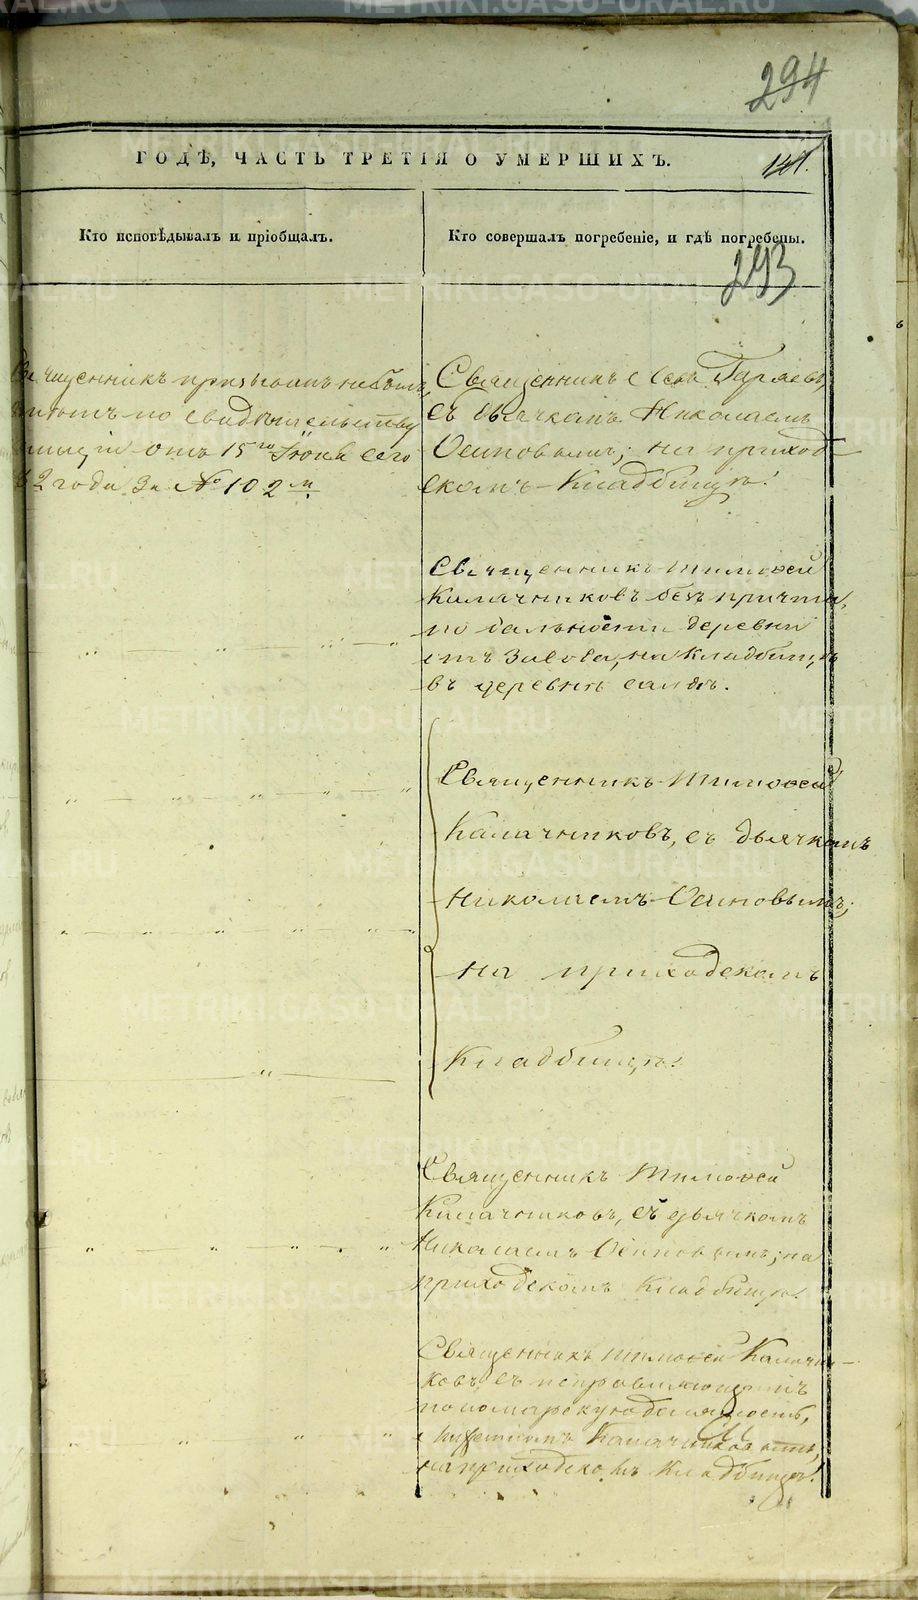 294
ГОДѢ, ЧАСТЬ ТРЕТІЯ О УМЕРШИХЪ.
141.
Кто исповѣдывалъ и пріобщалъ.
Кто совершалъ погребеніе, и гдѣ погребены.
293
Священникъ призванъ небылъ,
по свидѣтельству
отъ 15го Іюня сего
года за № 102м
Священникъ Гаряевъ,
съ дьячкомъ Николаемъ
Осиповымъ; на приход-
скомъ Кладбищѣ.
Священникъ Тимоѳей
Калачниковъ безъ причта,
по дальности деревни
отъ Завода, на Кладбищѣ
въ деревнѣ
Священникъ Тимоѳей
Калачниковъ, съ дьячкомъ
Николаемъ Осиповымъ;
на приходскомъ
Кладбищѣ.
Священникъ Тимоѳей
Калачниковъ, съ дьячкомъ
Николаемъ Осиповымъ; на
приходскомъ Кладбищѣ.
Священникъ Тимоѳей Калачни-
ковъ, съ исправляющимъ
пономарскую должность,
Калачниковымъ,
на приходскомъ Кладбищѣ.
METRIKI.GASO-URAL.RU